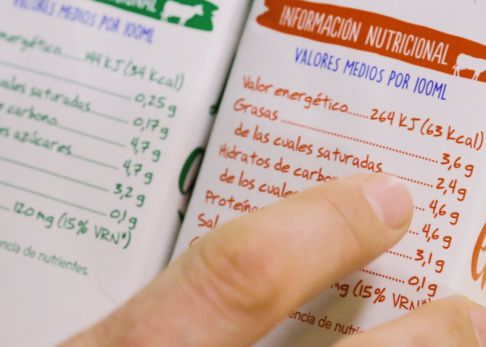 VALORES MEDIOS POR 100ML
144 kJ (34 Kcal)
0,25 g
saturadas 0,17 g
carbono 4,7 g
azúcares 4,7 g
3,2 g
0,1 g
120 mg (15% VRN*)
de nutrientes.
INFORMACIÓN NUTRICIONAL
VALORES MEDIOS POR 100ML
Valor energético 264 kJ (63 Kcal)
Grasas 3,6 g
de las cuales saturadas 2,4 g
Hidratos de 4,6 g
de los 4,6 g
3,1 g
Sal 0,1 g
mg (15% VRN